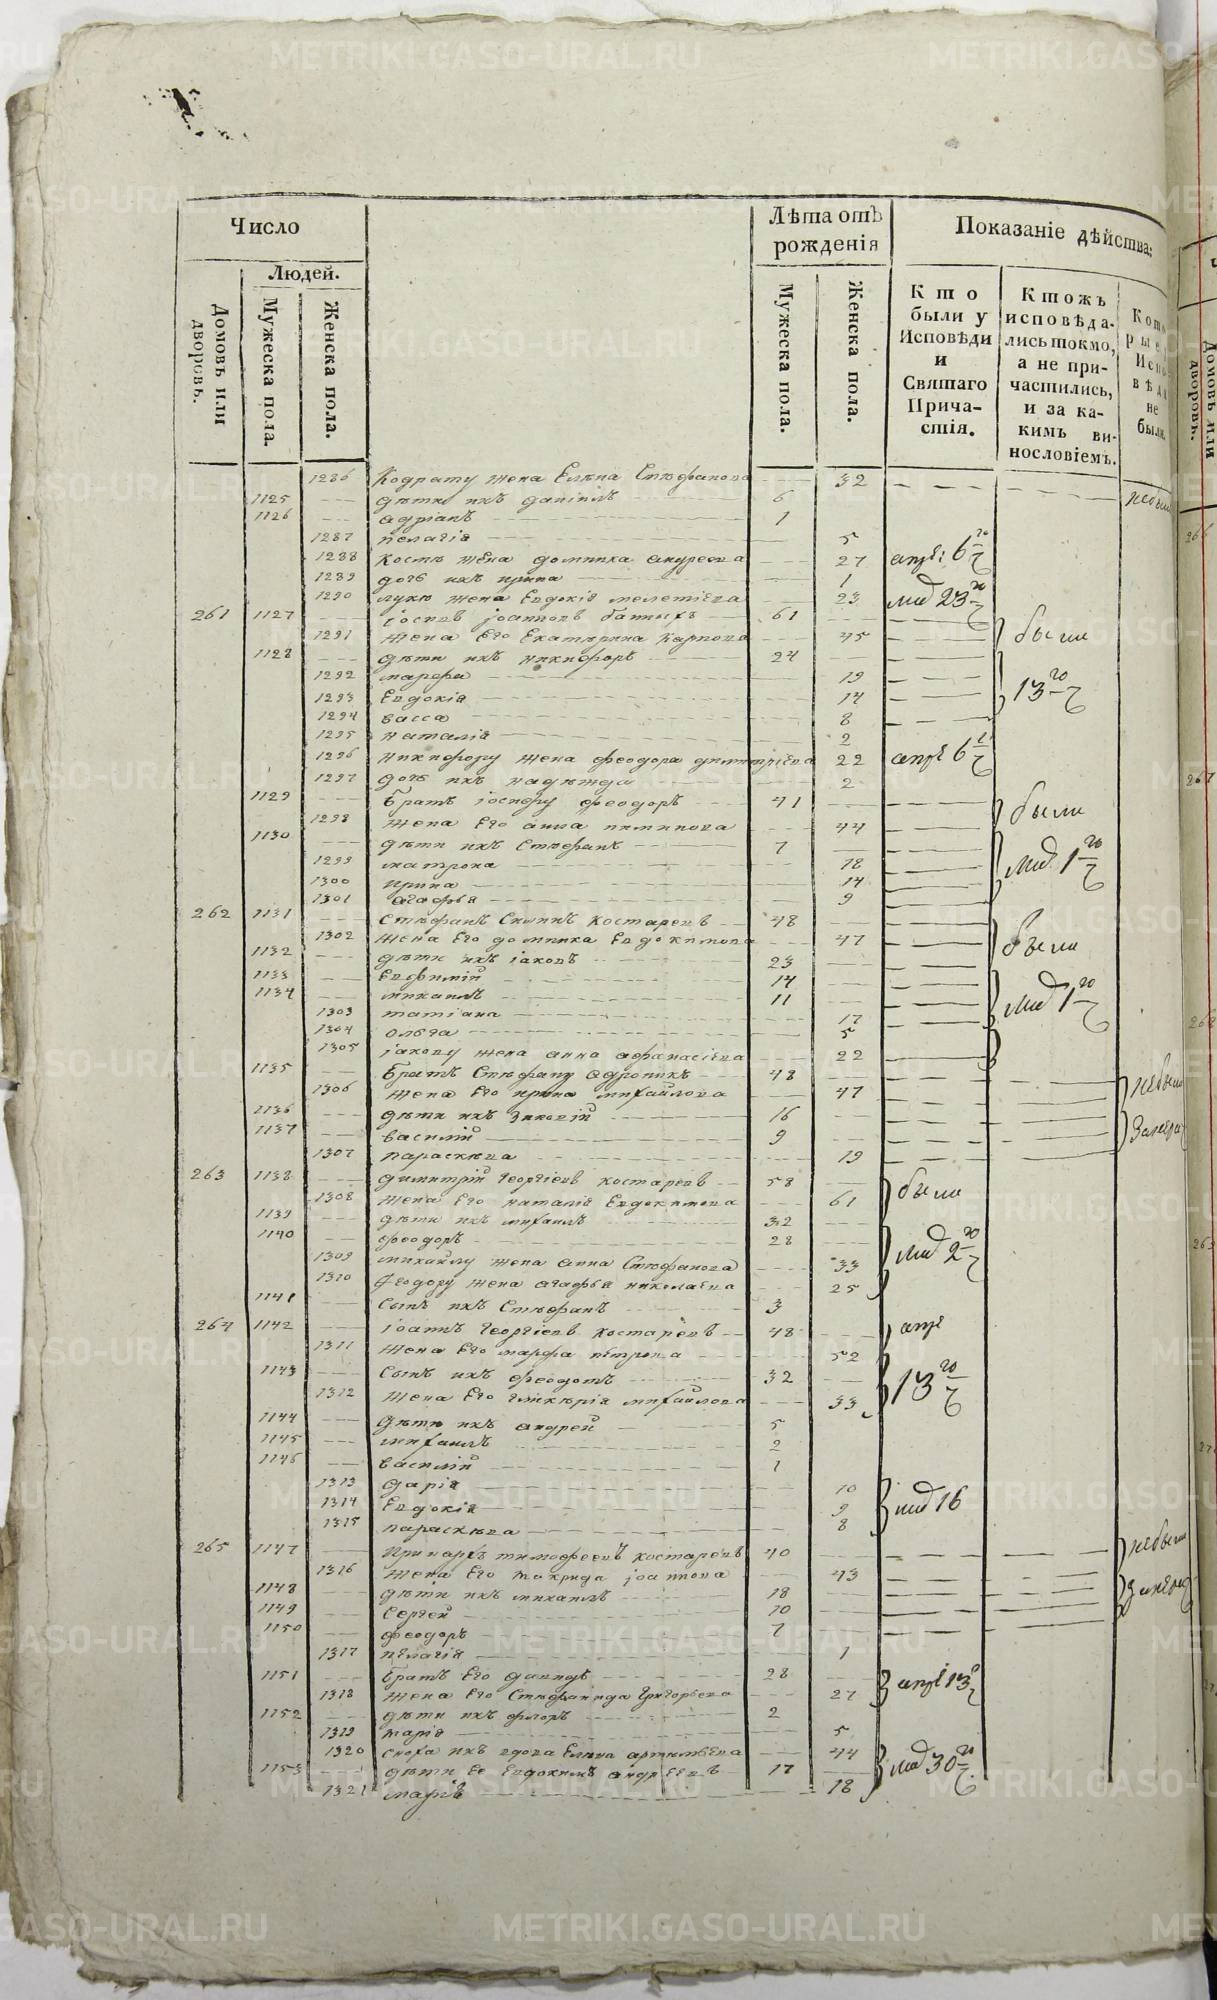 Число
Лѣта отъ рожденія
Показаніе дѣйства:
Людей.
Домовъ или дворовъ.
Мужеска пола.
Женска пола.
Мужеска пола.
Женска пола.
Кто были у Исповѣди и Святаго Причастія.
Ктожъ исповѣдались токмо, а не причастились, и за какимъ винословіемъ.
1286 Кодрату жена Елена Стефанова 32
1125 дѣти ихъ даніилъ 6
1126 адріанъ 1
1287 пелагія 5
1288 жена домника андреева 27
1289 дочь ихъ ирина 1
1290 луки жена Евдокія мелетіева 23
261 1127 іосифъ іоанновъ 61
1291 жена Его Екатерина карпова 45 были
1128 дѣти ихъ никифоръ 24
1292 марфа 19 13 го
1293 Евдокія 14
1294 васса 8
1295 наталія 2
1296 никифору жена феодора димитріева 22
1297 дочь ихъ надежда 2
1129 братъ іосифу феодоръ 41 были
1298 жена Его анна 44
1130 дѣти ихъ Стефанъ 7
1299 матрона 18
1300 ирина 14
1301 агафья 9
262 1131 Стефанъ костаревъ 48
1302 жена Его домника Евдокимова 47 были
1132 дѣти ихъ іаковъ 23
1133 Евфимій 14
1134 михаилъ 11
1303 татіана 17
1304 ольга 5
1305 іакову жена анна афанасіева 22
1135 братъ Стефану 48
1306 жена Его ирина михайлова 47
1136 дѣти ихъ зиновій 16
1137 василій 9
1307 параскева 19
263 1138 димитрій Георгіевъ костаревъ 58
1308 жена Его наталія Евдокимова 61 были
1139 дѣти ихъ михаилъ 32
1140 феодоръ 28
1309 михайлу жена анна Стефанова 33
1310 Феодору жена агафья николаева 25
1141 Сынъ ихъ Стефанъ 3
264 1142 іоаннъ Георгіевъ костаревъ 48
1311 жена Его марфа петрова 52
1143 Сынъ ихъ феодотъ 32 13 го
1312 жена Его гликерія михайлова 33
1144 дѣти ихъ андрей 5
1145 михаилъ 2
1146 василій 1
1313 дарія 10
1314 Евдокія 9 16
1315 параскева 8
265 1147 тимофеевъ костаревъ 40
1316 жена Его макрида іоаннова 43
1148 дѣти ихъ михаилъ 18
1149 Сергей 10
1150 феодоръ 7
1317 пелагія 1
1151 братъ Его давидъ 28
1318 жена Его Стефанида григорьева 27
1152 дѣти ихъ флоръ 2
1319 марія 5
1320 сноха ихъ вдова Елена артемьева 44
1153 дѣти Ее Евдокимъ андреевъ 17
1321 марія 18
METRIKI.GASO-URAL.RU